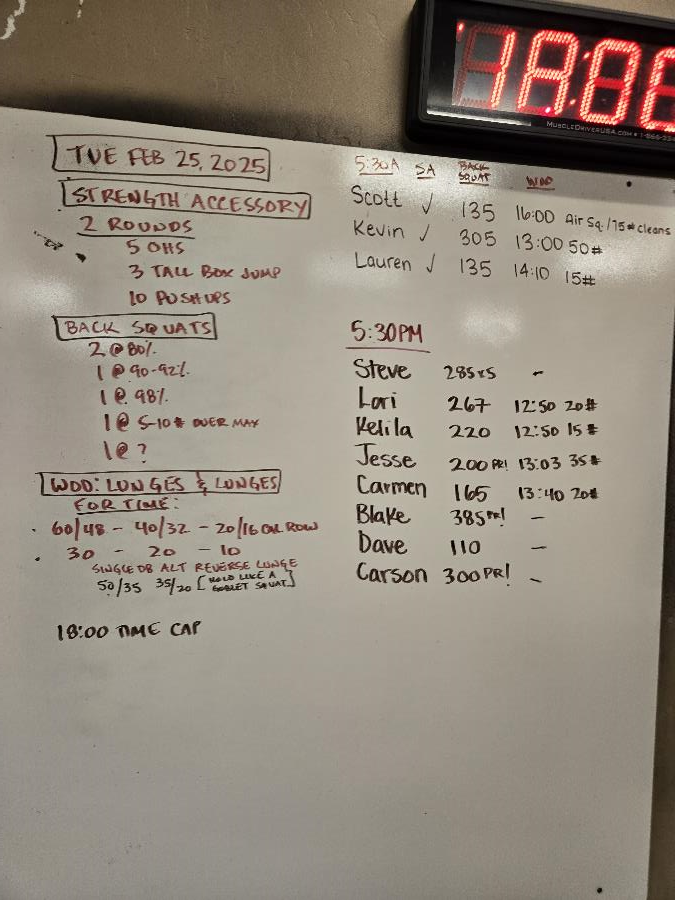 TUE FEB 25, 2025
STRENGTH ACCESSORY
2 ROUNDS
5 OHS
3 TALL BOX JUMP
10 PUSHUPS
BACK SQUATS
2 @ 80%
1 @ 90-92%
1 @ 98%
1 @ 5-10# OVER MAX
1 @ ?
WOD: LUNGES & LUNGES
FOR TIME:
60/48 - 40/32 - 20/16 CAL ROW
30 - 20 - 10
SINGLE DB ALT REVERSE LUNGE
50/35 35/20 [HOLD LIKE A
GOBLET SQUAT]
18:00 TIME CAP
5:30A SA BACK SQUAT WOD
Scott ✓ 135 16:00 Air Sq./75# cleans
Kevin ✓ 305 13:00 50#
Lauren ✓ 135 14:10 15#
5:30PM
Steve 285x5 -
Lori 267 12:50 20#
Kelila 220 12:50 15#
Jesse 200 PR! 13:03 35#
Carmen 165 13:40 20#
Blake 385 PR! -
Dave 110 -
Carson 300 PR! -
18:0
MUSCLEDRIVERUSA.COM • 1-866-